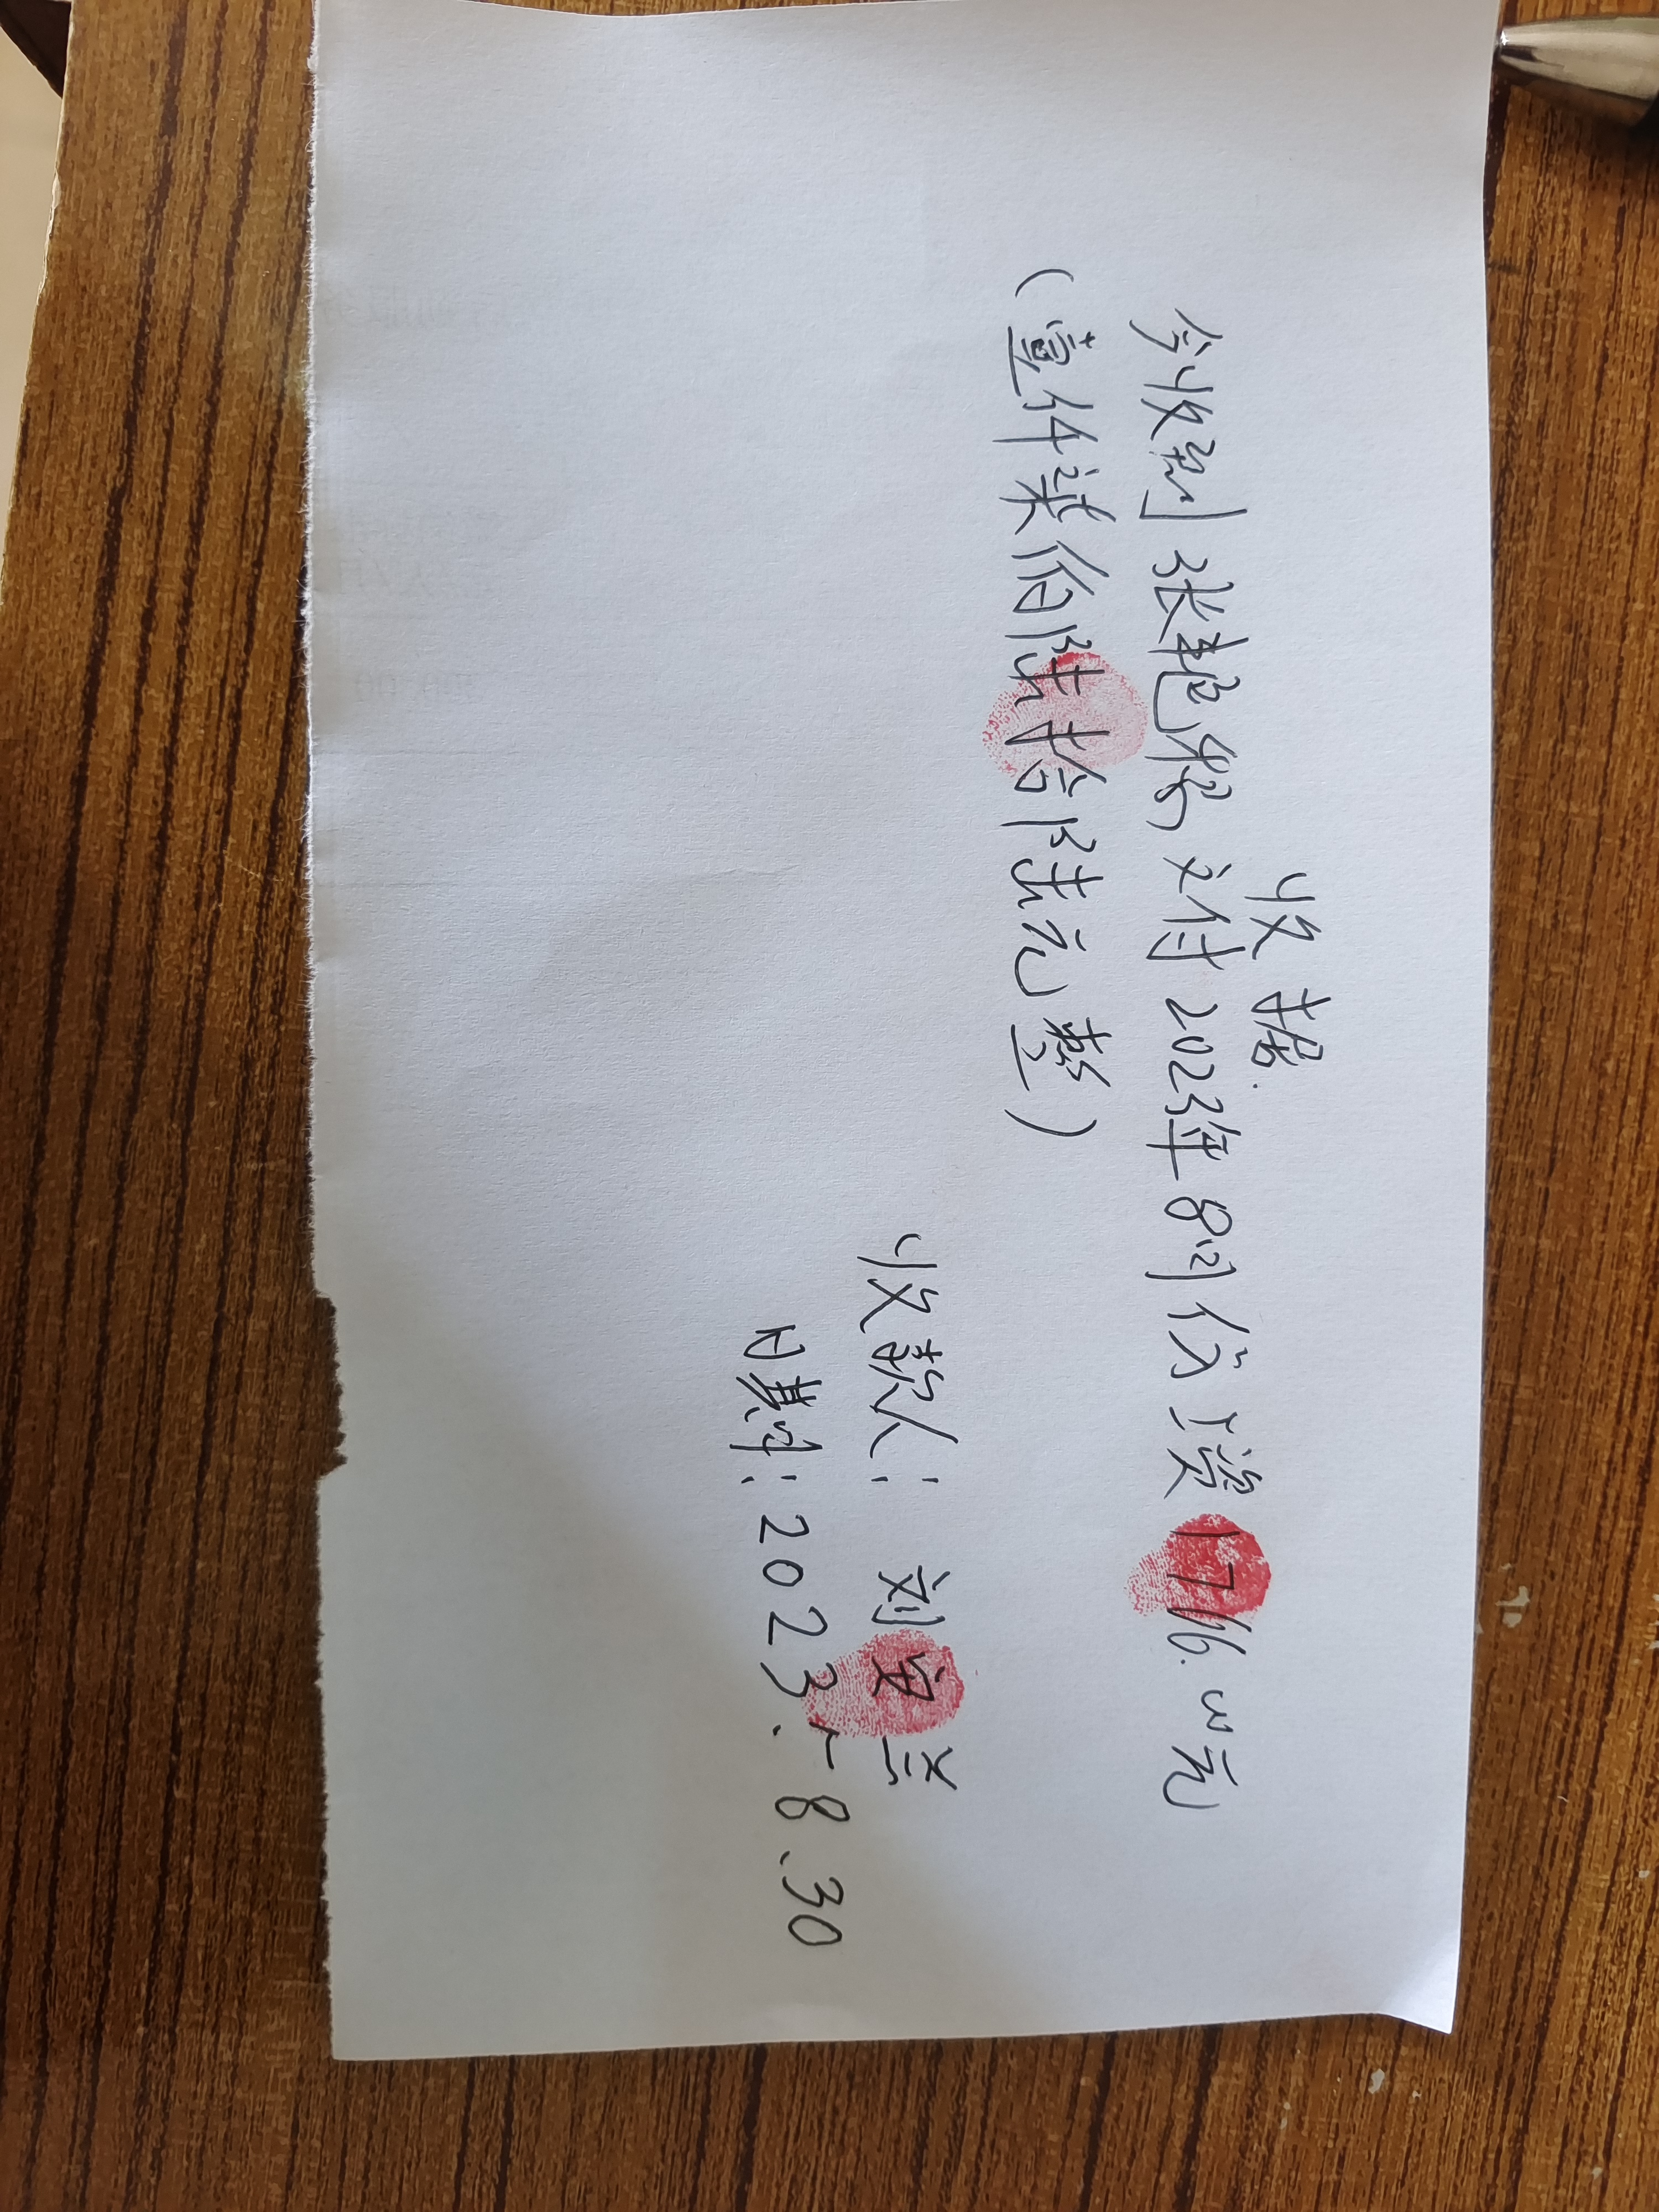 收据.
今收到张艳 支付2023年8月份工资1766.00元
(壹仟柒佰陆拾陆元整)
收款人:刘 兰
日期:2023.8.30